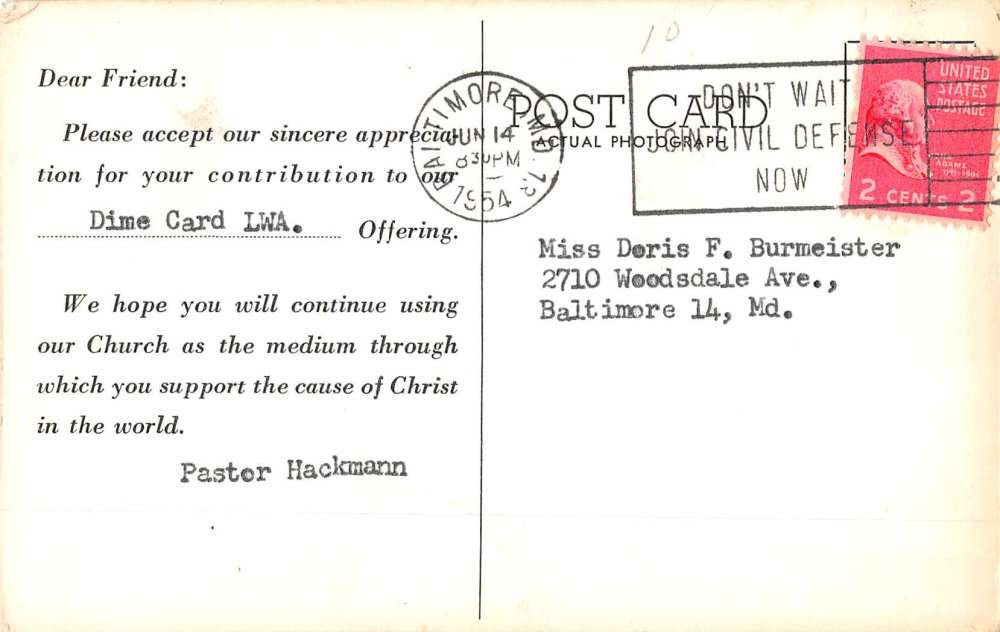 Dear Friend:
Please accept our sincere apprecia-
tion for your contribution to our
Dime Card LWA. Offering.
We hope you will continue using
our Church as the medium through
which you support the cause of Christ
in the world.
Pastor Hackmann
10
BALTIMORE, MD.
JUN 14
830PM
1954
POST CARD
ACTUAL PHOTOGRAPH
DON'T WAIT
JOIN CIVIL DEFENSE
NOW
UNITED
STATES
POSTAGE
JOHN
ADAMS
2 CENTS 2
Miss Doris F. Burmeister
2710 Woodsdale Ave.,
Baltimore 14, Md.